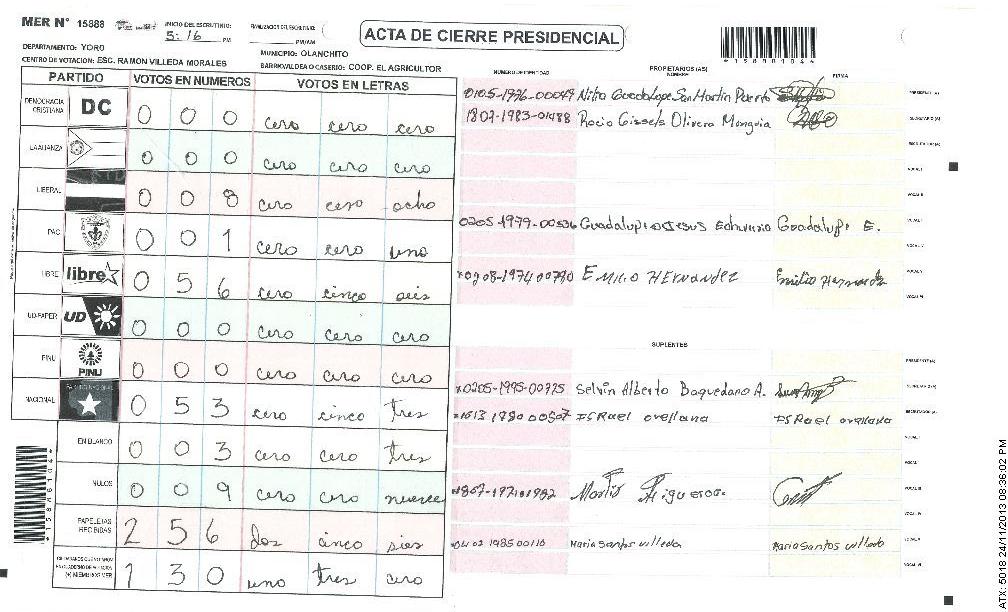 MER N° 15888
INICIO DEL ESCRUTINIO: 5:16 PM
FINALIZACION DEL ESCRUTINIO: PM/AM
ACTA DE CIERRE PRESIDENCIAL
DEPARTAMENTO: YORO
MUNICIPIO: OLANCHITO
CENTRO DE VOTACION: ESC. RAMON VILLEDA MORALES
BARRIO/ALDEA O CASERIO: COOP. EL AGRICULTOR
*15888104*
PARTIDO VOTOS EN NUMEROS VOTOS EN LETRAS
DEMOCRACIA CRISTIANA DC 0 0 0 cero cero cero
LA ALIANZA 0 0 0 cero cero cero
LIBERAL 0 0 8 cero cero ocho
PAC 0 0 1 cero cero uno
LIBRE libre 0 5 6 cero cinco seis
UD-FAPER UD 0 0 0 cero cero cero
PINU PINU 0 0 0 cero cero cero
NACIONAL PARTIDO NACIONAL 0 5 3 cero cinco tres
EN BLANCO 0 0 3 cero cero tres
NULOS 0 0 9 cero cero nueve
PAPELETAS RECIBIDAS 2 5 6 dos cinco sies
(+) MIEMBROS MER 1 3 0 uno tres cero
NUMERO DE IDENTIDAD PROPIETARIOS (AS) NOMBRE FIRMA
0105-1976-00049 Guadalupe San Martin PRESIDENTE (A)
1807-1983-01488 Rocio Olivera SECRETARIO (A)
ESCRUTADOR (A)
VOCAL I
VOCAL II
Guadalupe E. VOCAL III
VOCAL IV
EMILIO HERNANDEZ Emilio Hernandez VOCAL V
VOCAL VI
SUPLENTES
PRESIDENTE (A)
0205-1995-00725 Selvin Alberto Baquedano A. SECRETARIO (A)
ISRael orellana ISRael orellana ESCRUTADOR (A)
VOCAL I
VOCAL II
Figueroa VOCAL III
VOCAL IV
Maria Santos villeda Maria Santos villeda VOCAL V
VOCAL VI
ATX: 5018 24/11/2013 08:36:02 PM